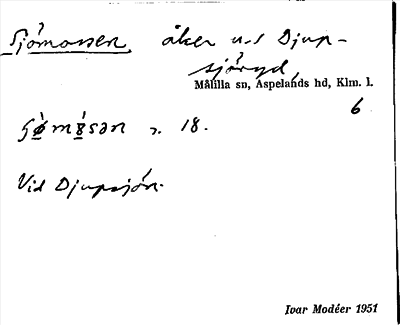 Sjömossen, åker u.s Djup-
sjöryd,
Målilla sn, Aspelands hd, Klm. l.
6
18.
Vid Djupsjön.
Ivar Modéer 1951